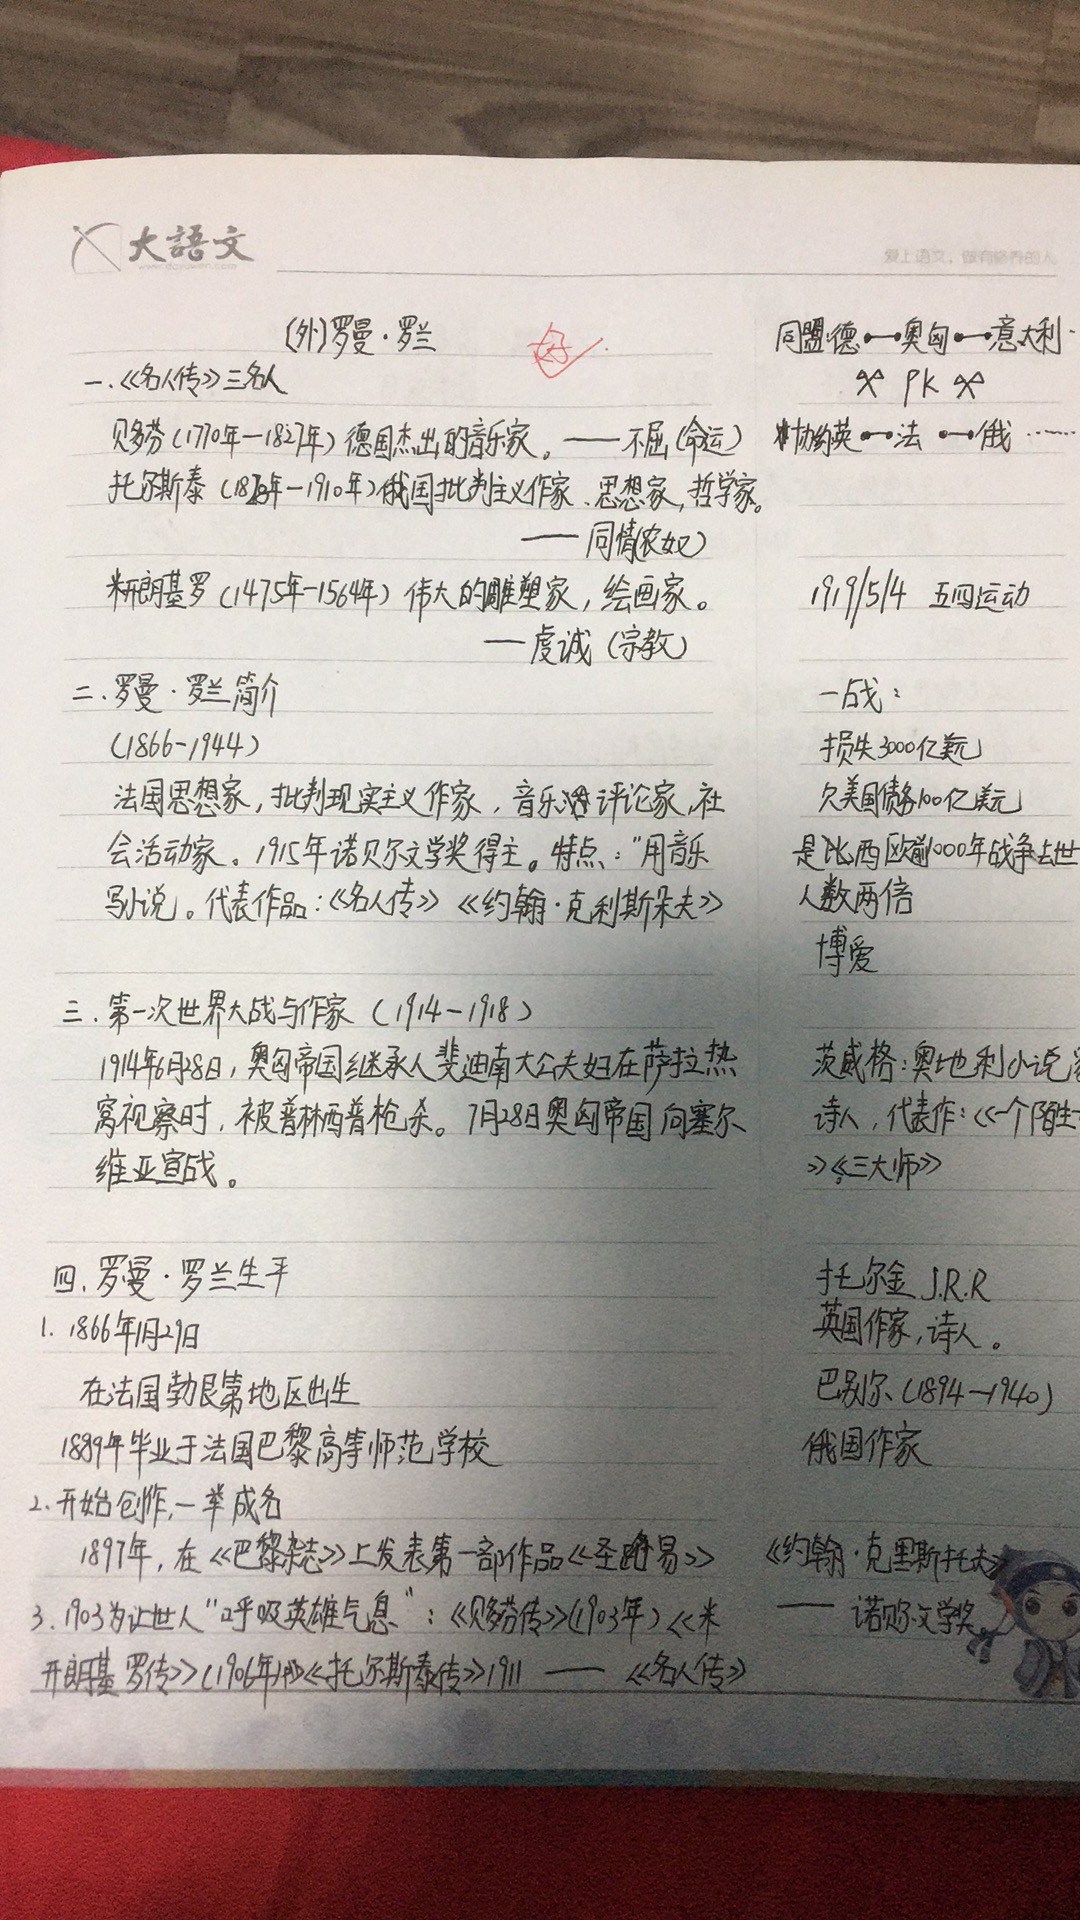 大語文
www.dayuwen.com
爱上语文，做有修养的人
(外)罗曼·罗兰
好
一.《名人传》三名人
贝多芬(1770年—1827年)德国杰出的音乐家。——不屈(命运)
托尔斯泰(18 年—1910年)俄国批判主义作家、思想家,哲学家。
——同情(农奴)
米开朗基罗(1475年-1564年)伟大的雕塑家,绘画家。
——虔诚(宗教)
二.罗曼·罗兰简介
(1866-1944)
法国思想家,批判现实主义作家,音乐评论家,社
会活动家。1915年诺贝尔文学奖得主。特点:"用音乐
写小说。代表作品:《名人传》《约翰·克利斯朵夫》
三.第一次世界大战与作家(1914-1918)
1914年6月28日,奥匈帝国继承人斐迪南大公夫妇在萨拉热
窝视察时,被普林西普枪杀。7月28日奥匈帝国向塞尔
维亚宣战。
四.罗曼·罗兰生平
1.1866年1月29日
在法国勃艮第地区出生
1889年毕业于法国巴黎高等师范学校
2.开始创作,一举成名
1897年,在《巴黎杂志》上发表第一部作品《圣路易》
3.1903为让世人"呼吸英雄气息":《贝多芬传》(1903年)《米
开朗基罗传》(1906年)和《托尔斯泰传》1911——《名人传》
同盟:德 奥匈 意大利
PK
协约英 法 俄……
1919/5/4 五四运动
一战:
损失3000亿美元
欠美国债务100亿美元
是比西欧前1000年战争去世
人数两倍
博爱
茨威格:奥地利小说家
诗人,代表作:《一个陌生
》《三大师》
托尔金 J.R.R
英国作家,诗人。
巴别尔(1894-1940)
俄国作家
《约翰·克里斯托夫》
——诺贝尔文学奖